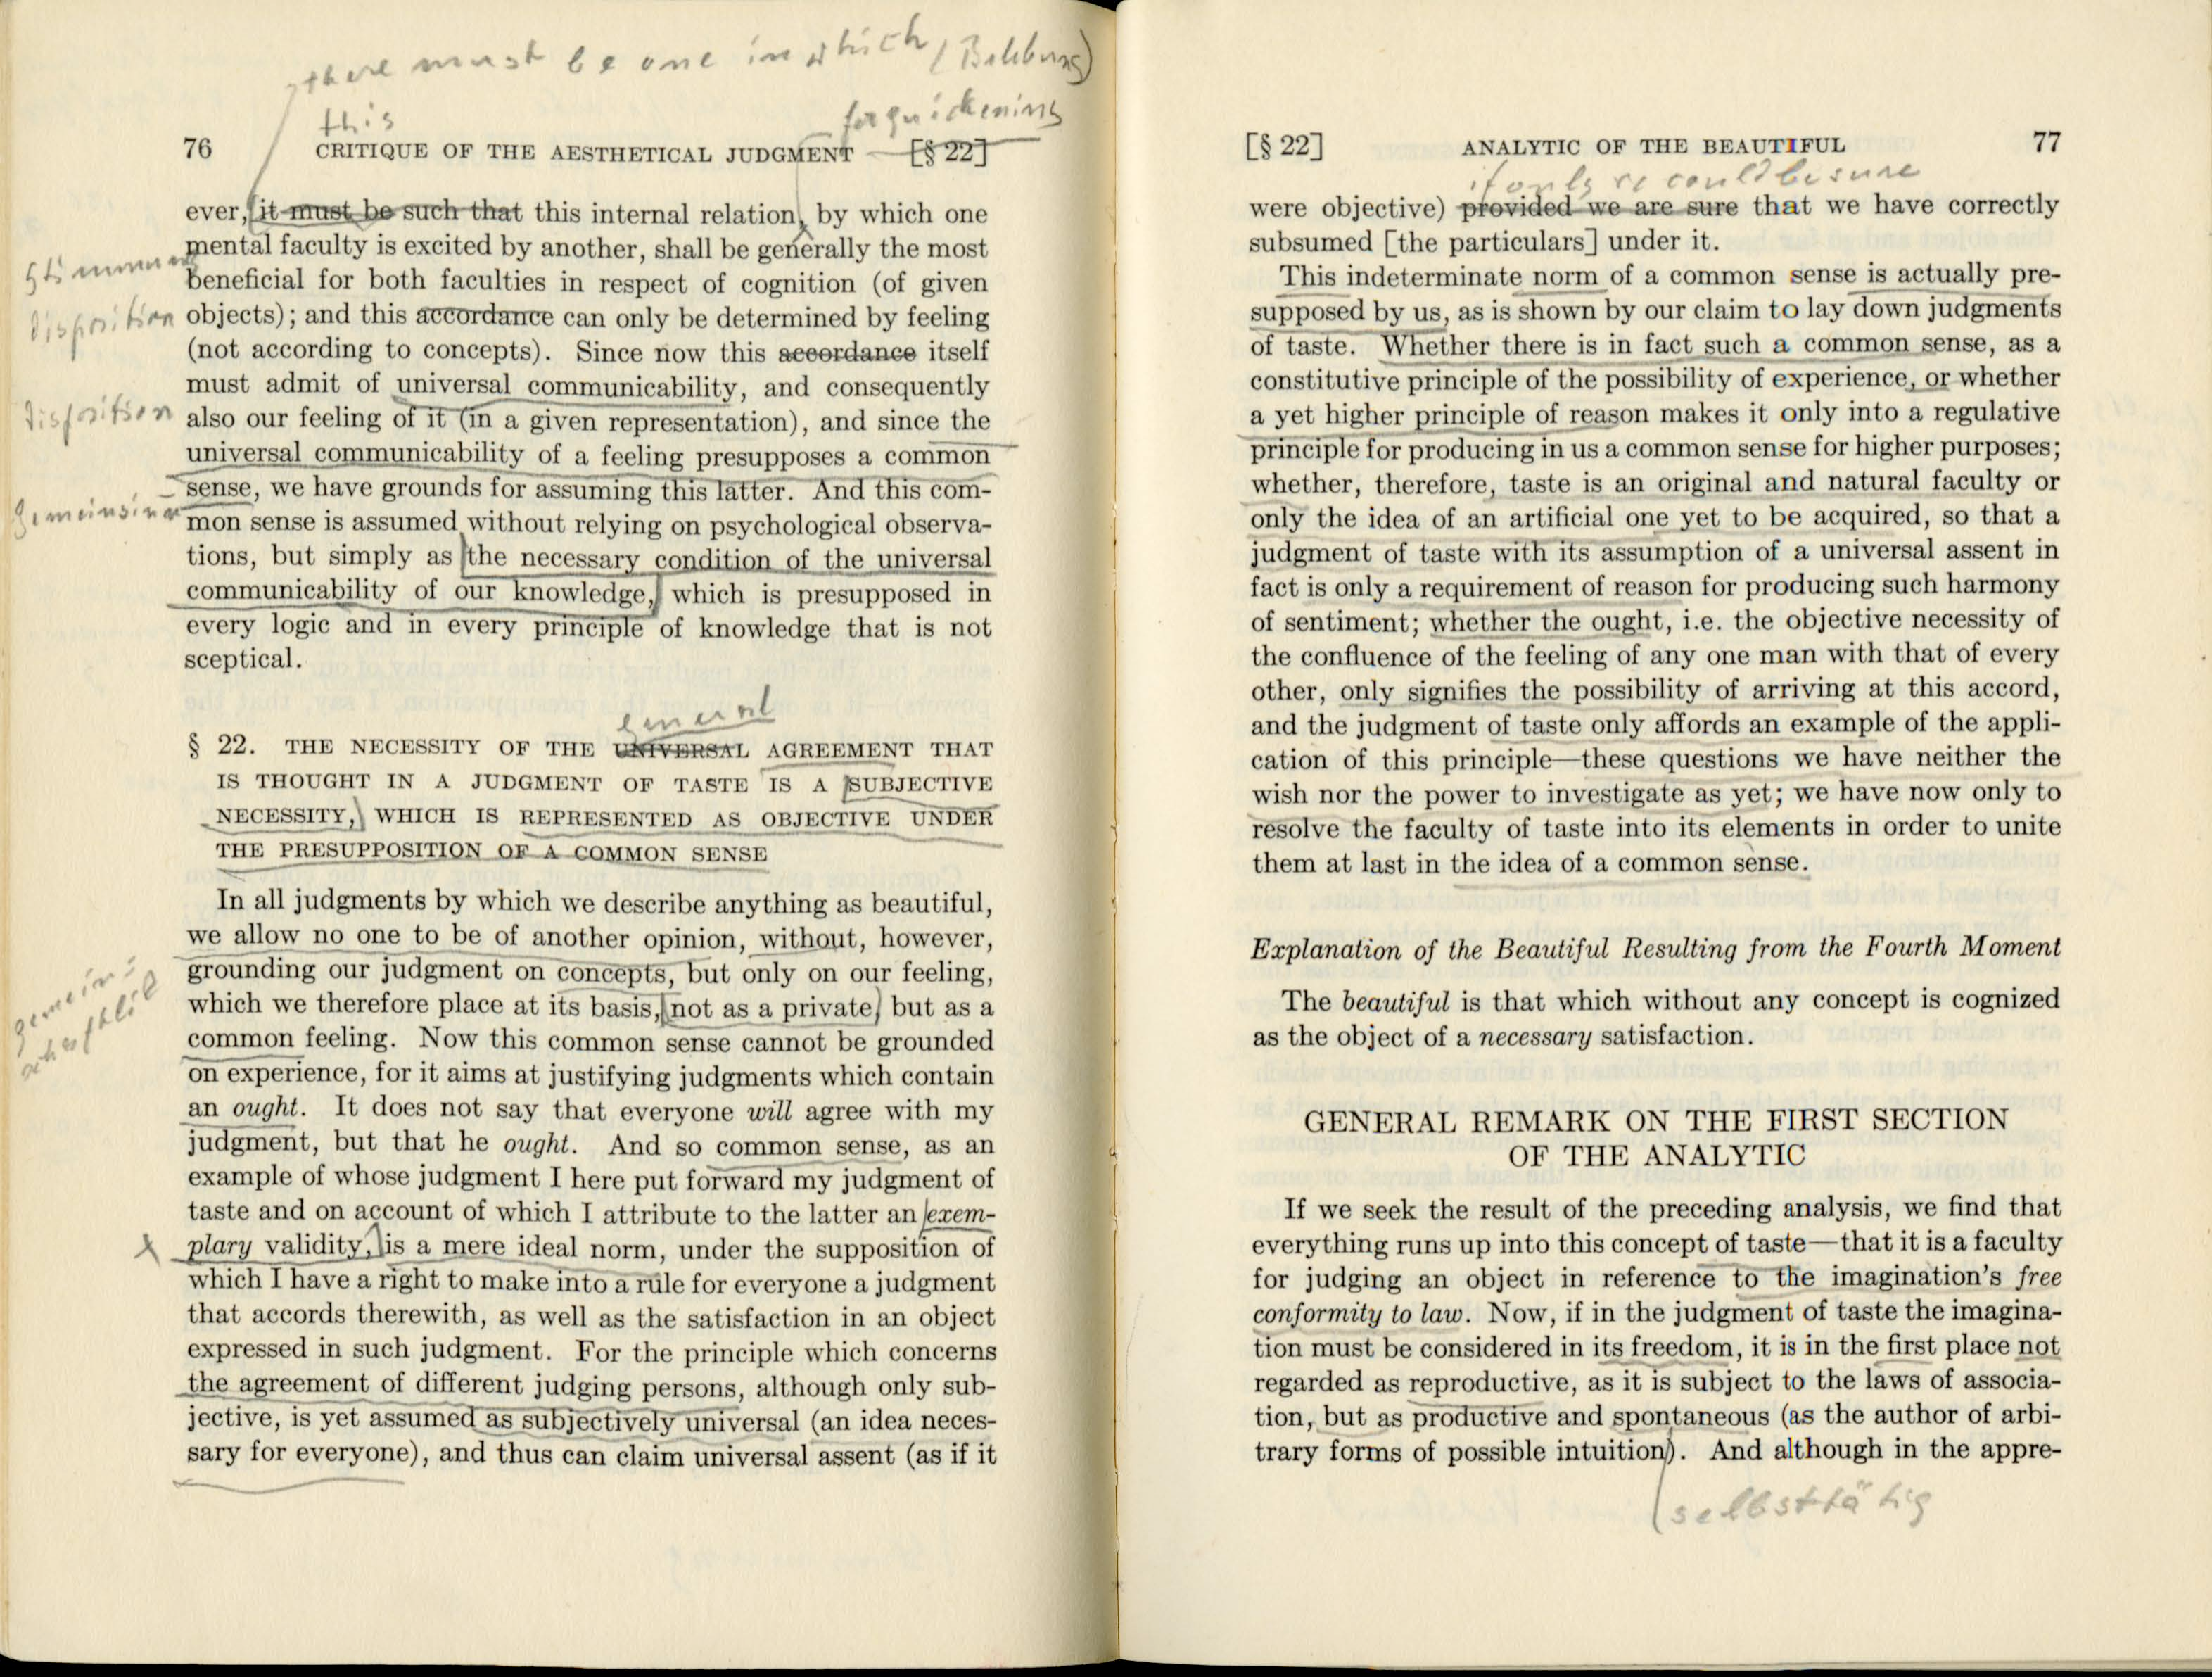 there must be one in which (Belebung)
this
for quickening
76 CRITIQUE OF THE AESTHETICAL JUDGMENT [§ 22]
ever, it must be such that this internal relation, by which one
mental faculty is excited by another, shall be generally the most
Stimmung
beneficial for both faculties in respect of cognition (of given
disposition
objects); and this accordance can only be determined by feeling
(not according to concepts). Since now this accordance itself
must admit of universal communicability, and consequently
disposition
also our feeling of it (in a given representation), and since the
universal communicability of a feeling presupposes a common
sense, we have grounds for assuming this latter. And this com-
Gemeinsinn
mon sense is assumed without relying on psychological observa-
tions, but simply as the necessary condition of the universal
communicability of our knowledge, which is presupposed in
every logic and in every principle of knowledge that is not
sceptical.
general
§ 22. THE NECESSITY OF THE UNIVERSAL AGREEMENT THAT
IS THOUGHT IN A JUDGMENT OF TASTE IS A SUBJECTIVE
NECESSITY, WHICH IS REPRESENTED AS OBJECTIVE UNDER
THE PRESUPPOSITION OF A COMMON SENSE
In all judgments by which we describe anything as beautiful,
we allow no one to be of another opinion, without, however,
grounding our judgment on concepts, but only on our feeling,
which we therefore place at its basis, not as a private, but as a
gemein-
schaftlich
common feeling. Now this common sense cannot be grounded
on experience, for it aims at justifying judgments which contain
an ought. It does not say that everyone will agree with my
judgment, but that he ought. And so common sense, as an
example of whose judgment I here put forward my judgment of
taste and on account of which I attribute to the latter an exem-
x plary validity, is a mere ideal norm, under the supposition of
which I have a right to make into a rule for everyone a judgment
that accords therewith, as well as the satisfaction in an object
expressed in such judgment. For the principle which concerns
the agreement of different judging persons, although only sub-
jective, is yet assumed as subjectively universal (an idea neces-
sary for everyone), and thus can claim universal assent (as if it
[§ 22] ANALYTIC OF THE BEAUTIFUL 77
if only we could be sure
were objective) provided we are sure that we have correctly
subsumed [the particulars] under it.
This indeterminate norm of a common sense is actually pre-
supposed by us, as is shown by our claim to lay down judgments
of taste. Whether there is in fact such a common sense, as a
constitutive principle of the possibility of experience, or whether
a yet higher principle of reason makes it only into a regulative
principle for producing in us a common sense for higher purposes;
whether, therefore, taste is an original and natural faculty or
only the idea of an artificial one yet to be acquired, so that a
judgment of taste with its assumption of a universal assent in
fact is only a requirement of reason for producing such harmony
of sentiment; whether the ought, i.e. the objective necessity of
the confluence of the feeling of any one man with that of every
other, only signifies the possibility of arriving at this accord,
and the judgment of taste only affords an example of the appli-
cation of this principle—these questions we have neither the
wish nor the power to investigate as yet; we have now only to
resolve the faculty of taste into its elements in order to unite
them at last in the idea of a common sense.
Explanation of the Beautiful Resulting from the Fourth Moment
The beautiful is that which without any concept is cognized
as the object of a necessary satisfaction.
GENERAL REMARK ON THE FIRST SECTION
OF THE ANALYTIC
If we seek the result of the preceding analysis, we find that
everything runs up into this concept of taste—that it is a faculty
for judging an object in reference to the imagination's free
conformity to law. Now, if in the judgment of taste the imagina-
tion must be considered in its freedom, it is in the first place not
regarded as reproductive, as it is subject to the laws of associa-
tion, but as productive and spontaneous (as the author of arbi-
trary forms of possible intuition). And although in the appre-
(selbsttätig